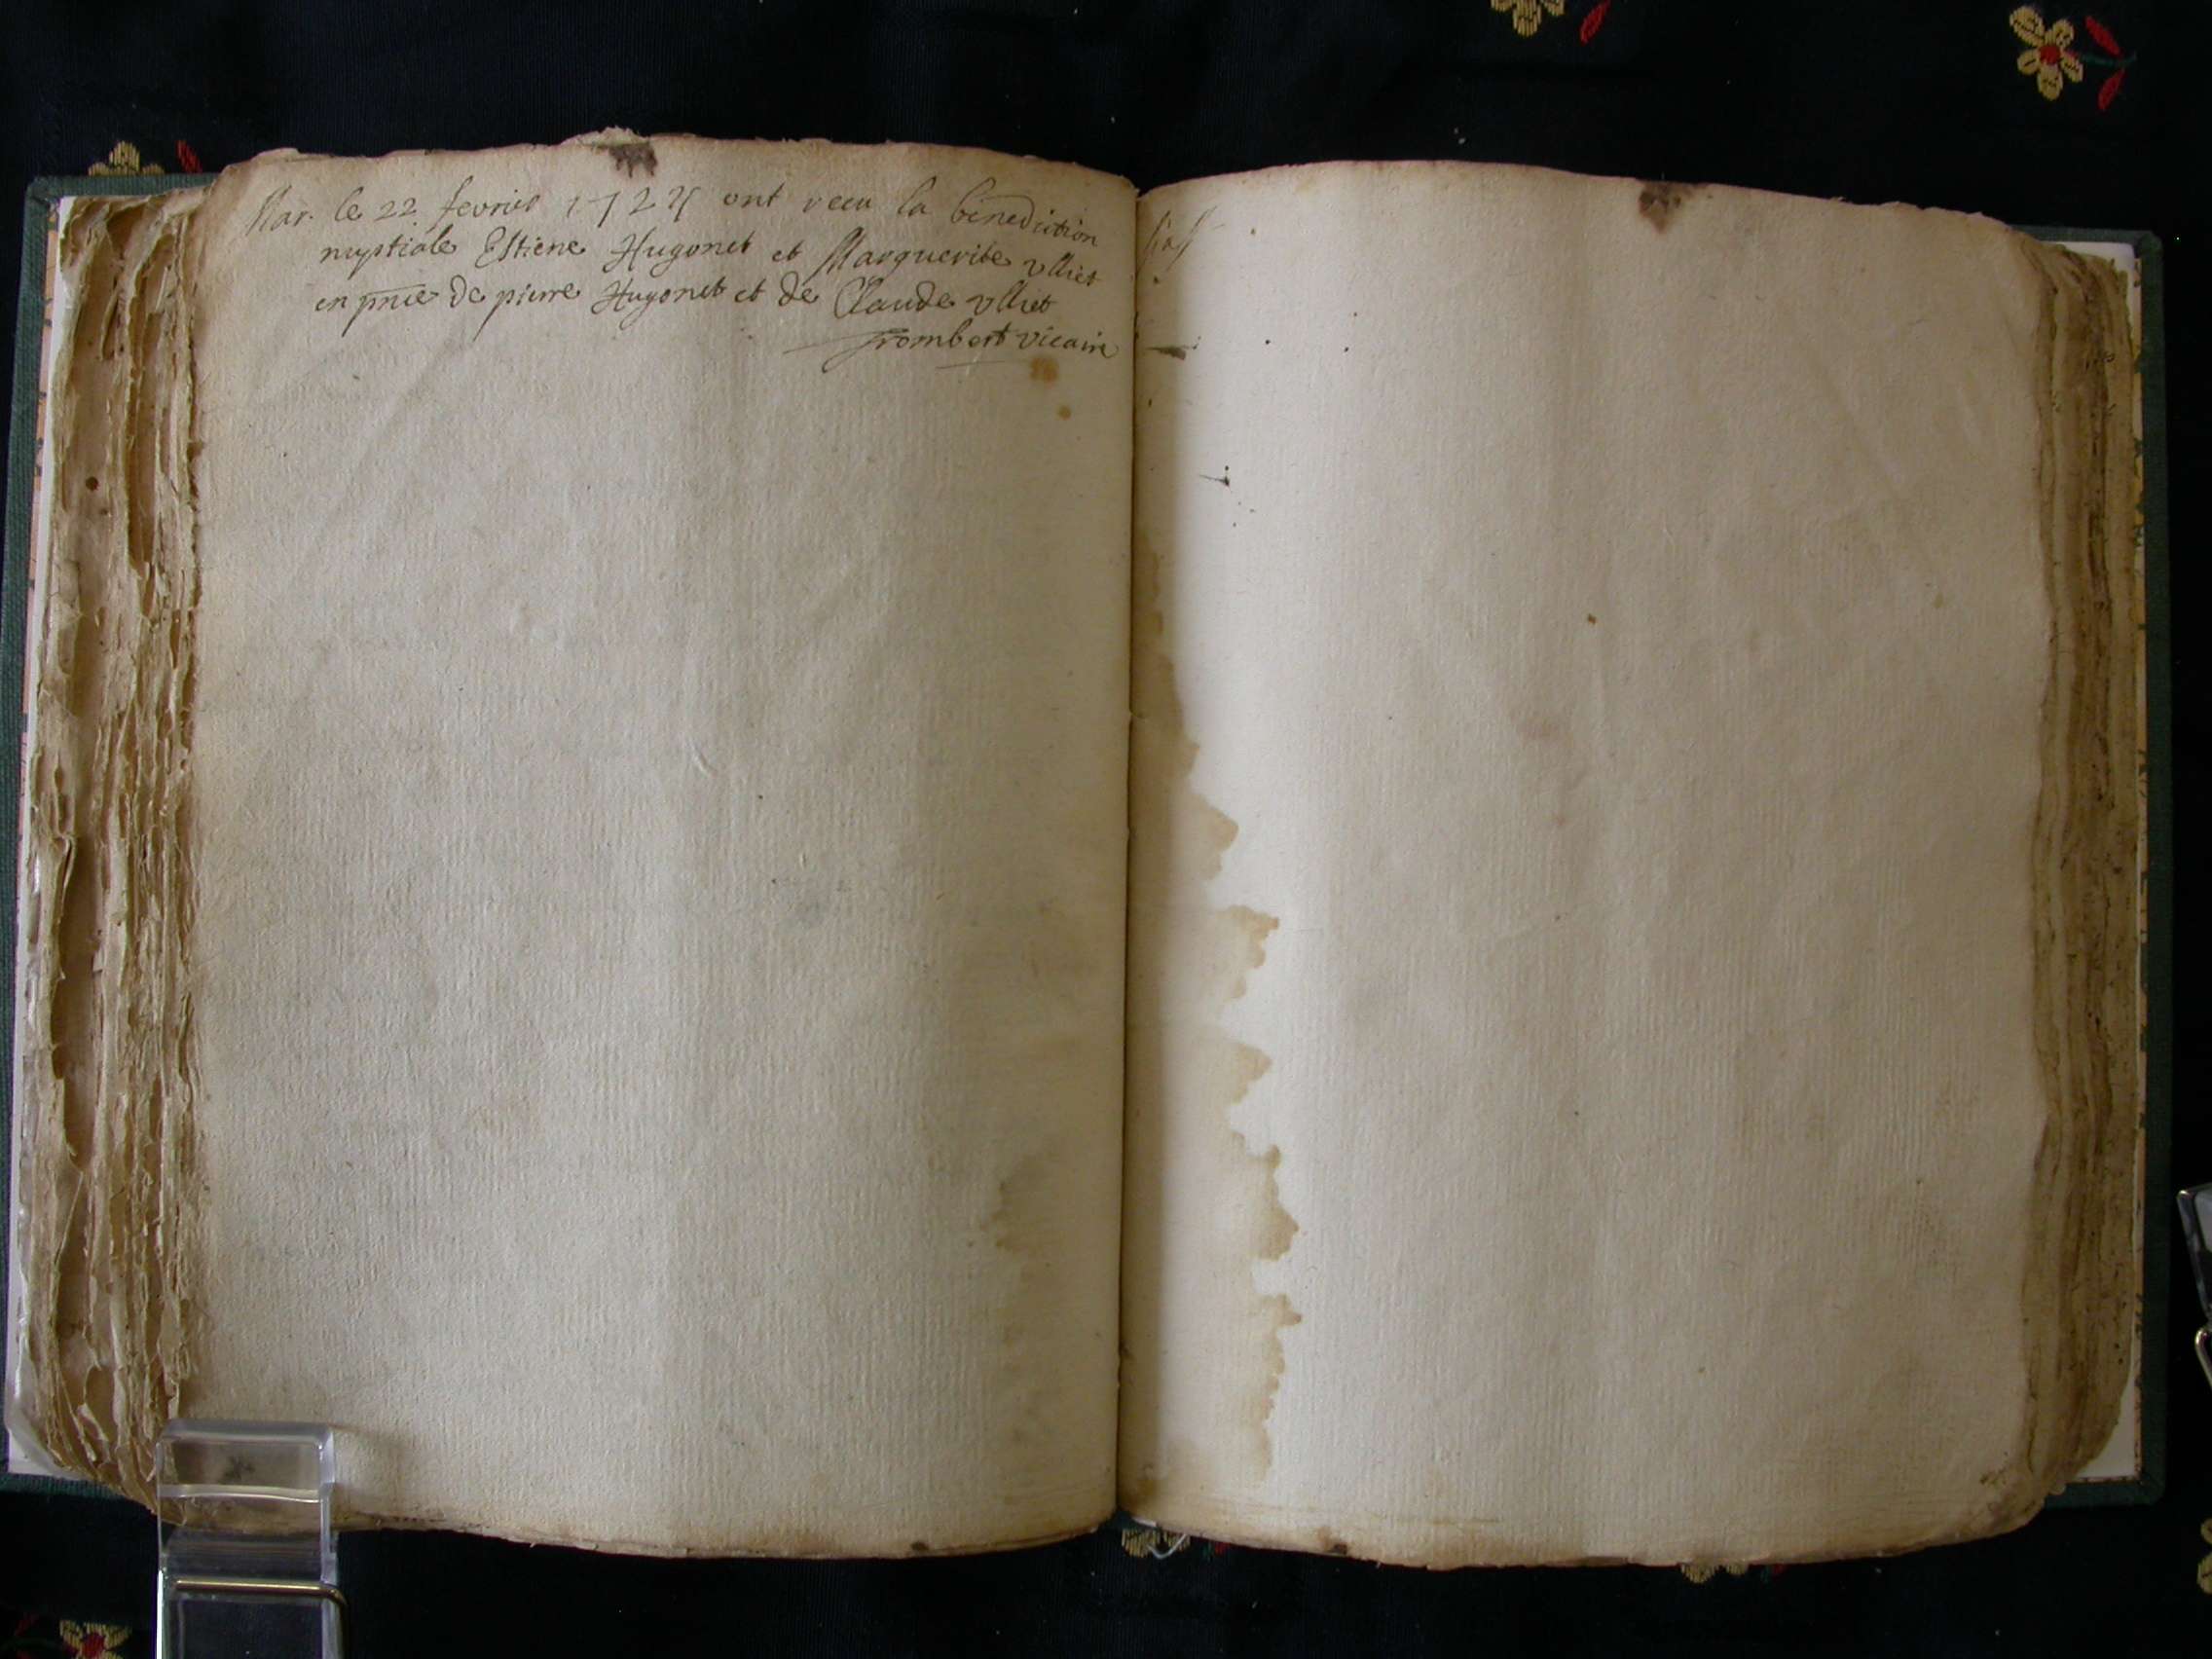 Mar. le 22 fevrier 1725 ont receu la benediction
nuptiale Estiene Hugonet et Marguerite ulliet
en pnce de pierre Hugonet et de Claude ulliet
Trombert vicaire